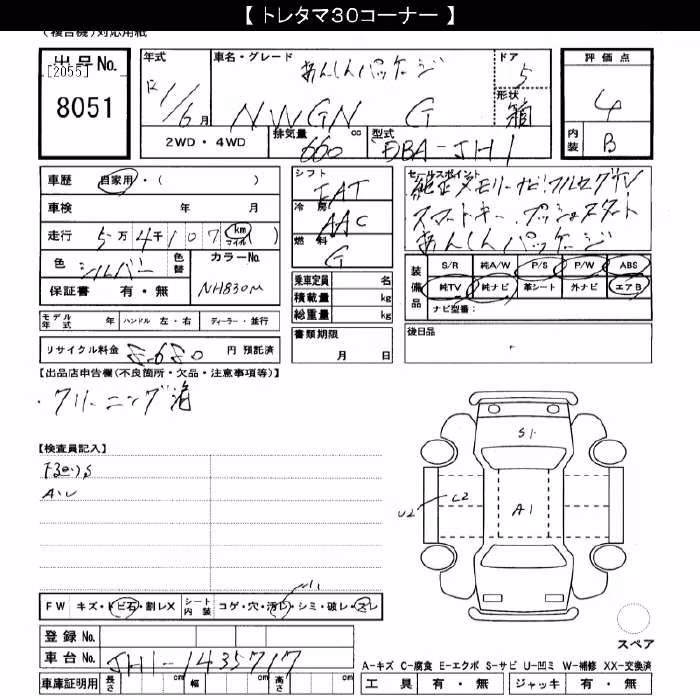 【 トレタマ30コーナー 】
(複合機)対応用紙
出品No.
[2055]
8051
年式
12 1/6月
車名・グレード
あんしんパッケージ
NWGN G
ドア
5
形状
箱
評価点
4
内装
B
2WD・4WD
排気量
660 cc
型式
DBA-JH1
車歴 自家用・( )
車検 年 月
走行 5万4千107 (km マイル)
色 シルバー 色替
カラーNo.
NH830M
保証書 有・無
シフト
FAT
冷房
AAC
燃料
G
乗車定員 名
積載量 kg
総重量 kg
書類期限
月 日
セールスポイント
純正メモリーナビフルセグTV
スマートキー プッシュスタート
あんしんパッケージ
装備品
S/R 純A/W P/S P/W ABS
純TV 純ナビ 革シート 外ナビ エアB
ナビ型番:
後日品
モデル年式 年 ハンドル 左・右 ディーラー・並行
リサイクル料金 8680 円 預託済
【出品店申告欄(不良箇所・欠品・注意事項等)】
・クリーニング済
【検査員記入】
A・U
S1
U2
C2
A1
FW キズ・トビ石・割レX
シート内装 コゲ・穴・汚レ・シミ・破レ・スレ
登録No.
車台No. JH1-1435717
車庫証明用 長さ cm 幅 cm 高さ cm
スペア
A-キズ C-腐食 E-エクボ S-サビ U-凹ミ W-補修 XX-交換済
工具 有・無 ジャッキ 有・無